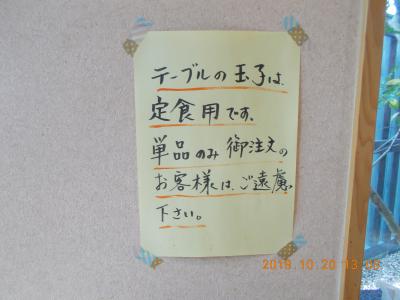 テーブルの玉子は、
定食用です。
単品のみ御注文の
お客様は、ご遠慮
下さい。
2018.10.20 13:02